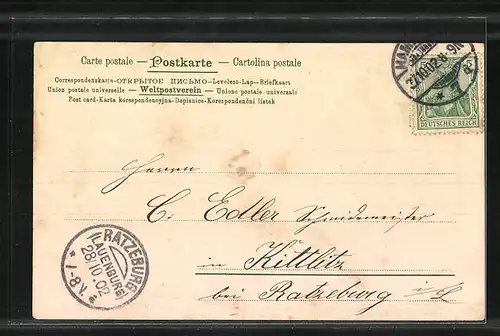 Carte postale – Postkarte – Cartolina postale
Correspondenzkarte-ОТКРЫТОЕ ПИСЬМО-Levelezo-Lap-Briefkaart
Union postale universelle – Weltpostverein – Unione postale universale
Post card-Karta korespondencyjna-Dopisnice-Korespondenční lístek
27/10.02.8-9N
DEUTSCHES REICH
Herrn
C. Edler Schmidemeister
in Kittlitz
bei Ratzeburg i/L
RATZEBURG
(LAUENBURG)
28/10.02
* 7-8V. *